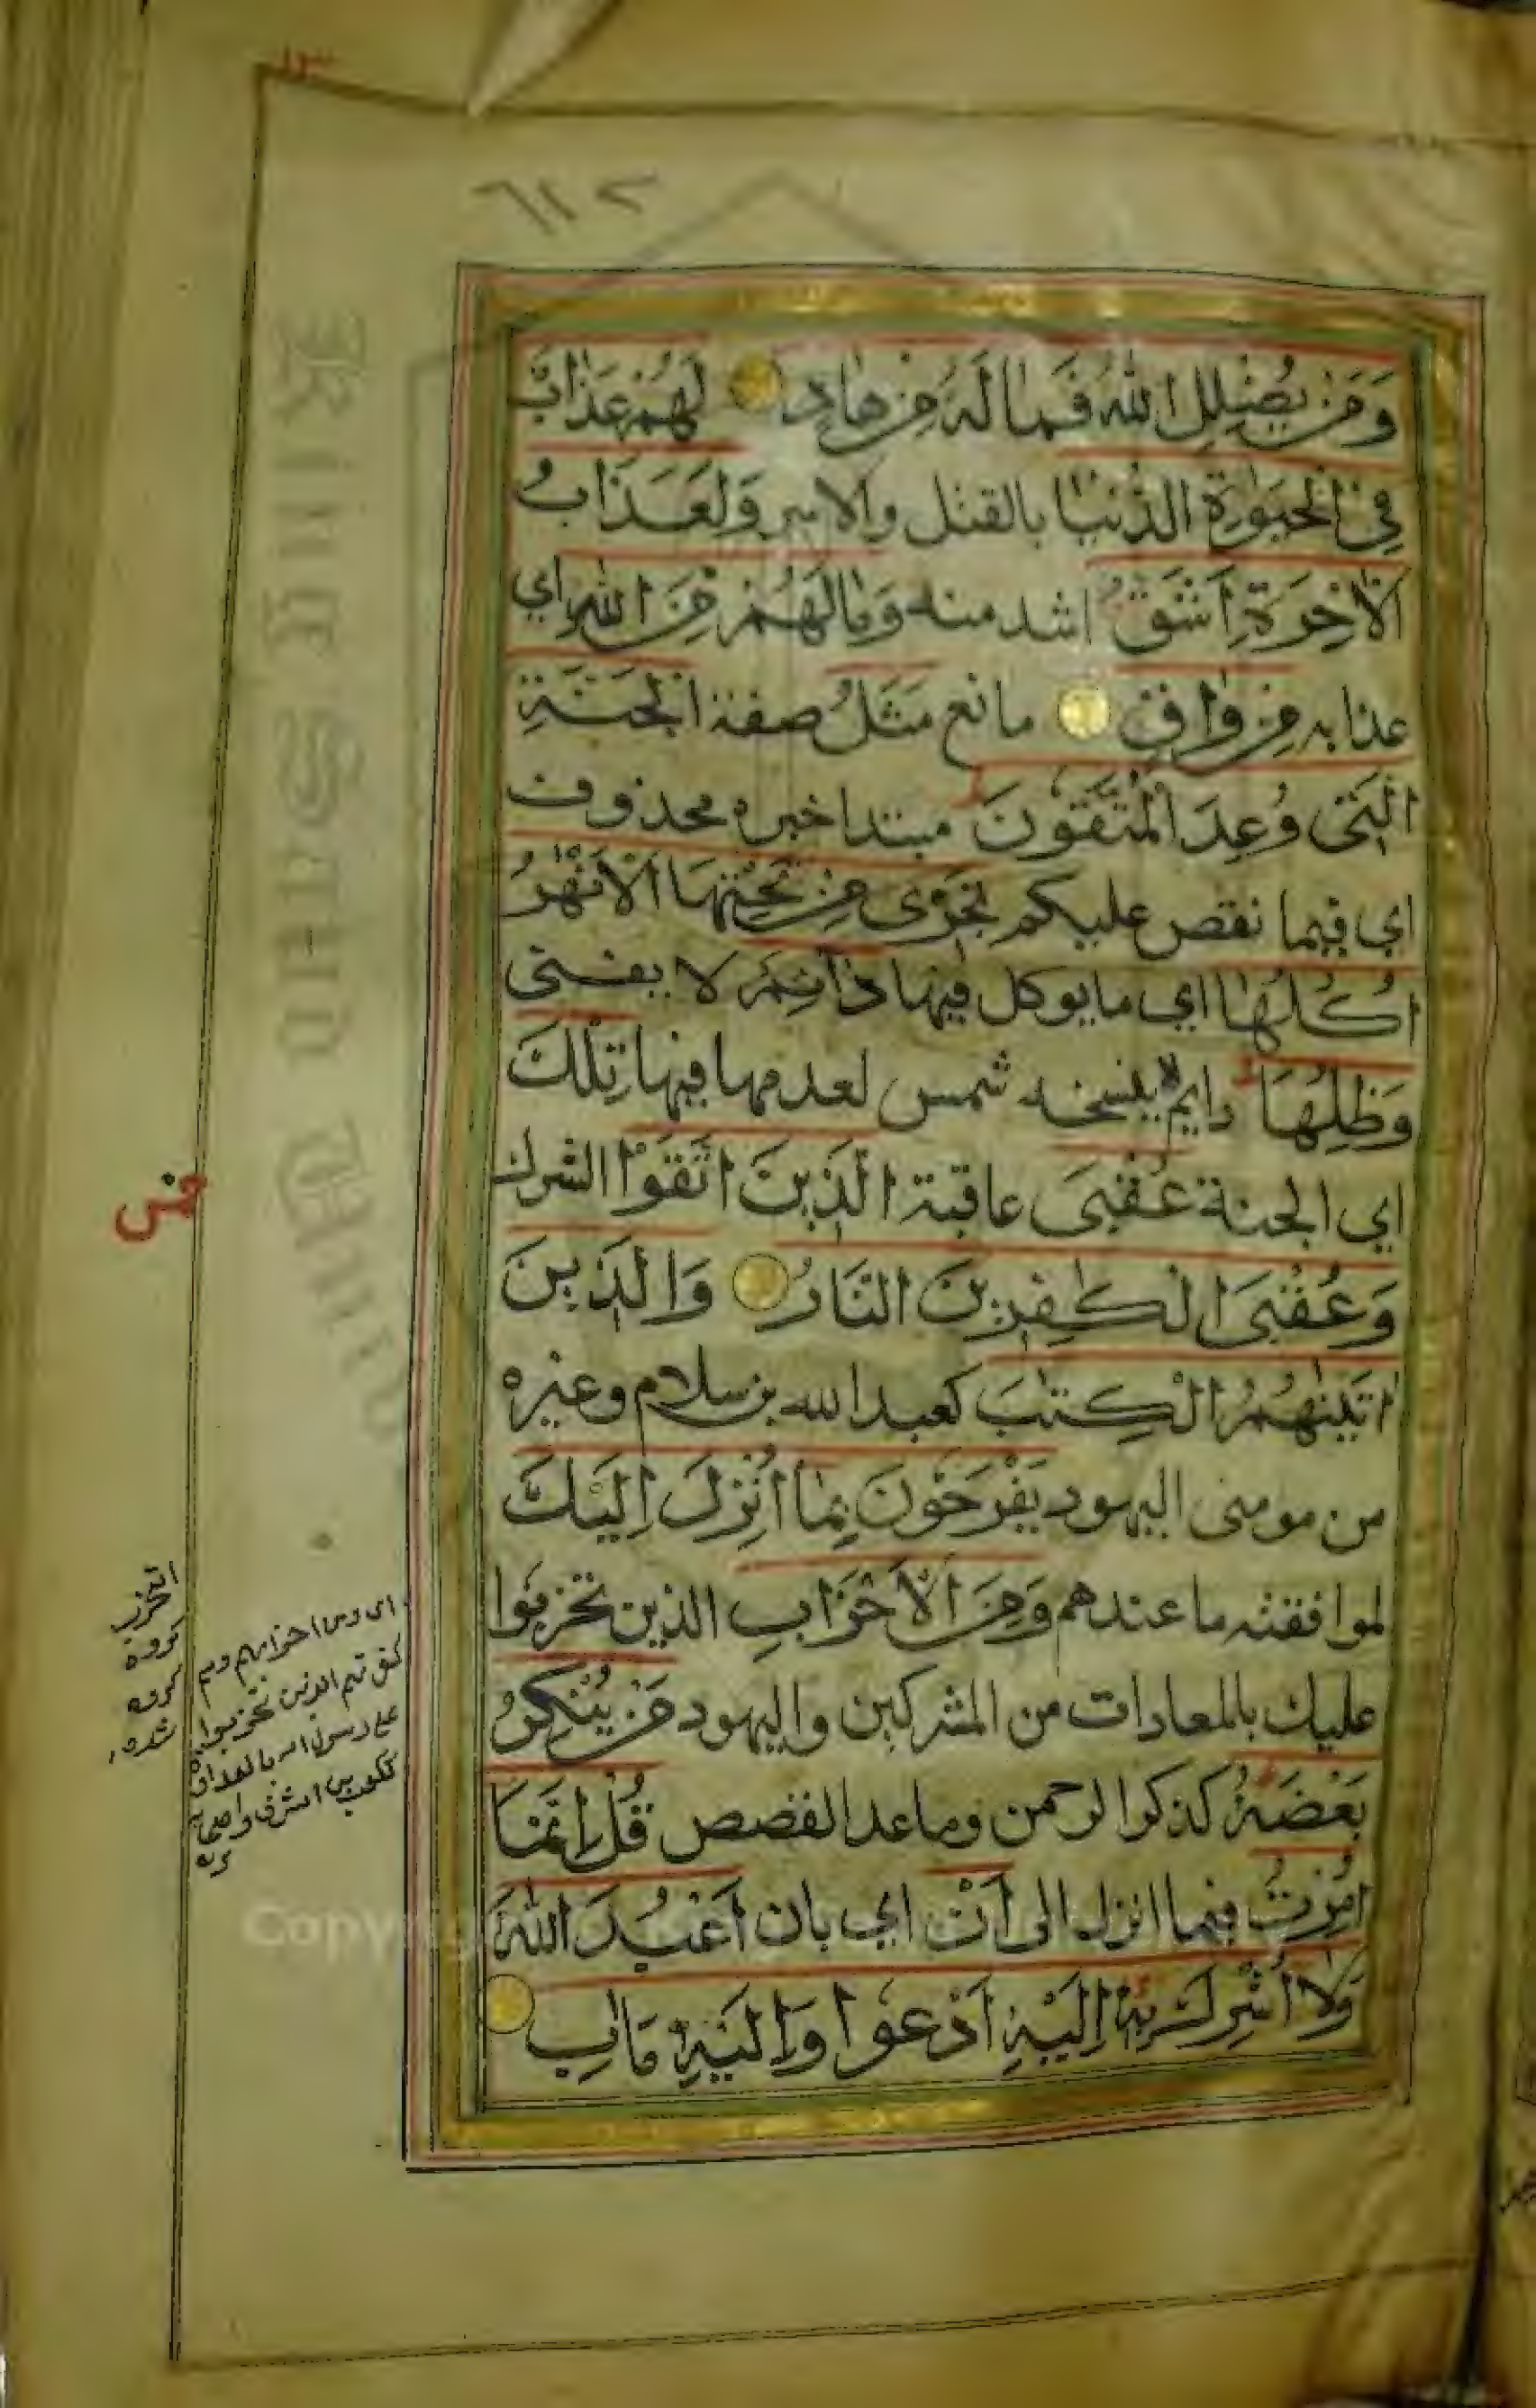 ١٣
٦١٢
وَمَنْ يُضْلِلِ اللّٰهُ فَمَا لَهُ مِنْ هَادٍ لَهُمْ عَذَابٌ
فِي الْحَيٰوةِ الدُّنْيَا بالقتل والاسر وَلَعَذَابُ
الْاٰخِرَةِ اَشَقُّ اشد منه وَمَا لَهُمْ مِنَ اللّٰهِ اي
عذابه مِنْ وَاقٍ مانع مَثَلُ صفة الْجَنَّةِ
الَّتِي وُعِدَ الْمُتَّقُونَ مبتدا خبره محذوف
اي فيما نقص عليكم تَجْرِي مِنْ تَحْتِهَا الْاَنْهٰرُ
اُكُلُهَا اي ما يوكل فيها دَآئِمٌ لا يفنى
وَظِلُّهَا دايم لا ينسخه شمس لعدمها فيها تِلْكَ
اي الجنة عُقْبَى عاقبة الَّذِينَ اتَّقَوْا الشرك
وَعُقْبَى الْكٰفِرِينَ النَّارُ وَالَّذِينَ
اٰتَيْنٰهُمُ الْكِتٰبَ كعبد الله بن سلام وغيره
من مومنى اليهود يَفْرَحُونَ بِمَا اُنْزِلَ اِلَيْكَ
لموافقته ما عندهم وَمِنَ الْاَحْزَابِ الذين تحزبوا
عليك بالمعادات من المشركين واليهود مَنْ يُنْكِرُ
بَعْضَهُ كذكر الرحمن وما عدا القصص قُلْ اِنَّمَا
اُمِرْتُ فيما انزل الى اَنْ اي بان اَعْبُدَ اللّٰهَ
وَلَا اُشْرِكَ بِهِ اِلَيْهِ اَدْعُوا وَاِلَيْهِ مَاٰبِ
اى ومن احزابهم وهم
كفرتهم الذين تحزبوا
على رسول الله بالعداوة
ككعب بن اشرف واصحابه
التحزب
كروه
كروه
شدن
King Saud
Copy